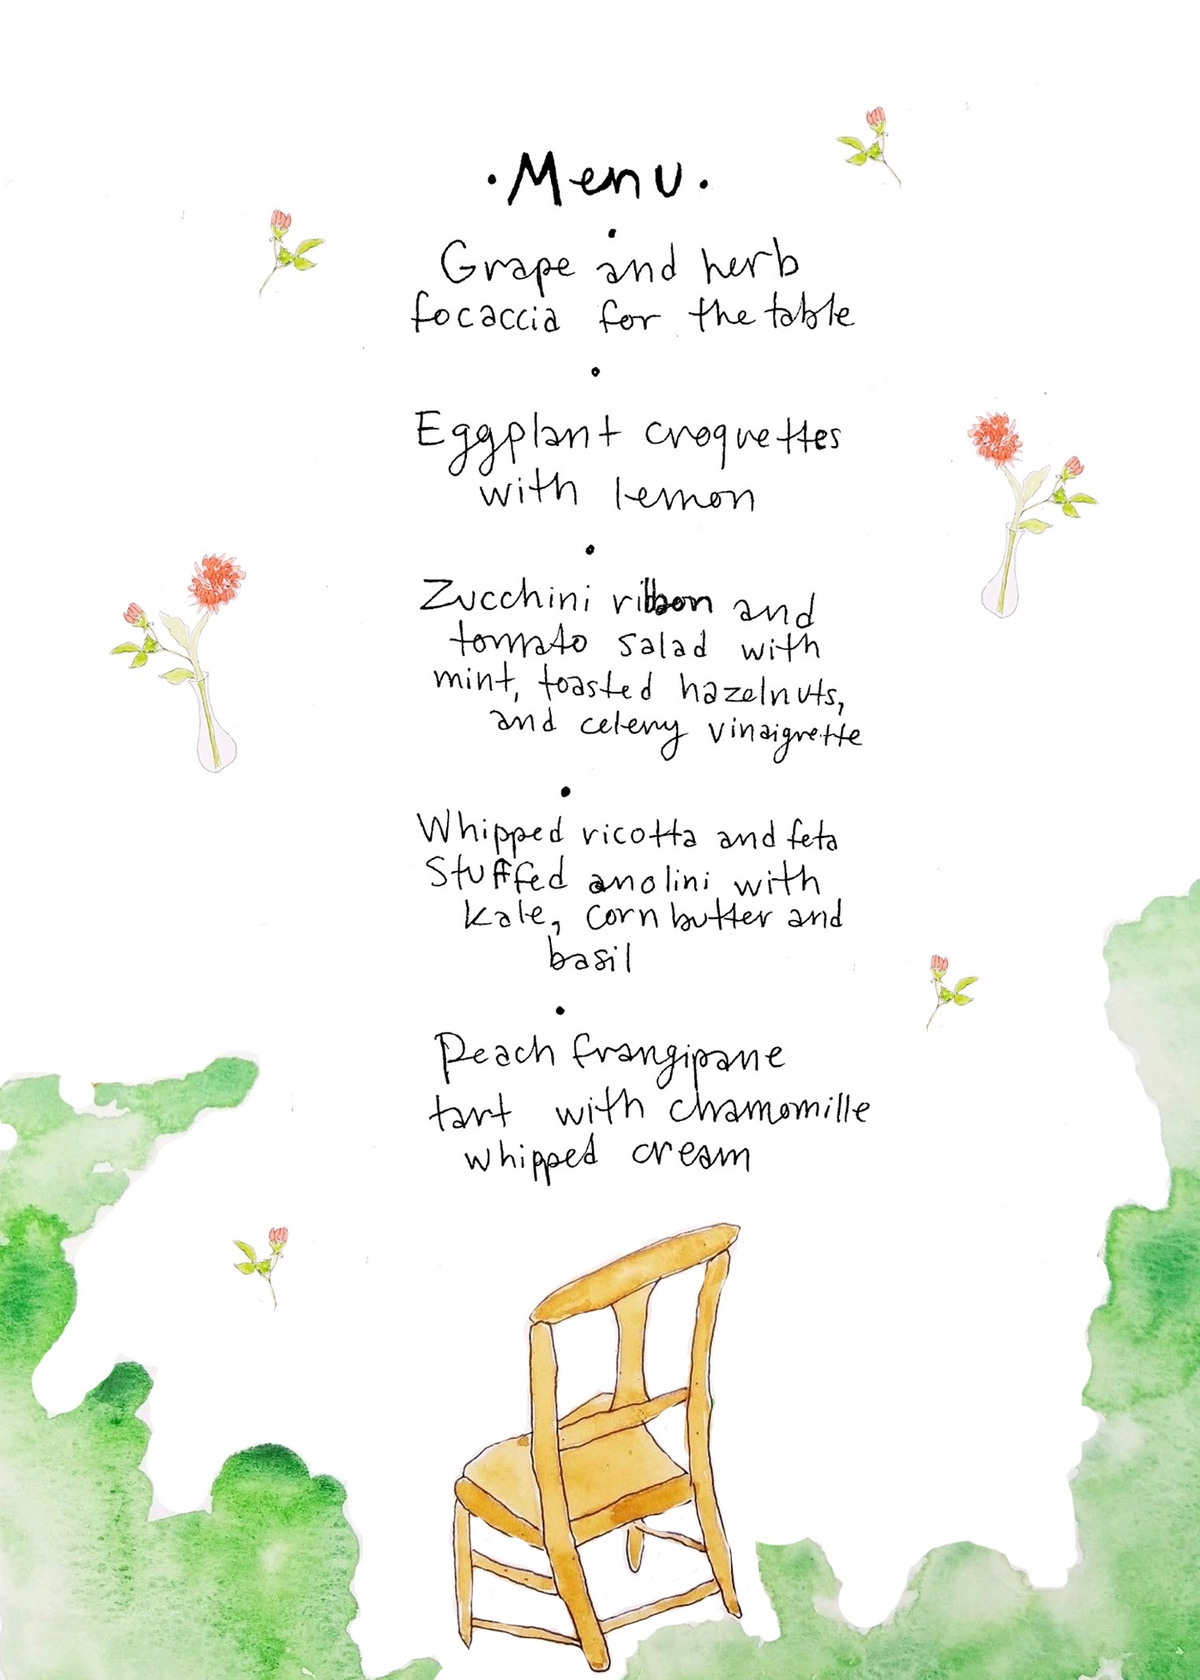 ·Menu·
Grape and herb
focaccia for the table
Eggplant croquettes
with lemon
Zucchini ribbon and
tomato salad with
mint, toasted hazelnuts,
and celery vinaigrette
Whipped ricotta and feta
Stuffed anolini with
kale, corn butter and
basil
Peach frangipane
tart with chamomille
whipped cream